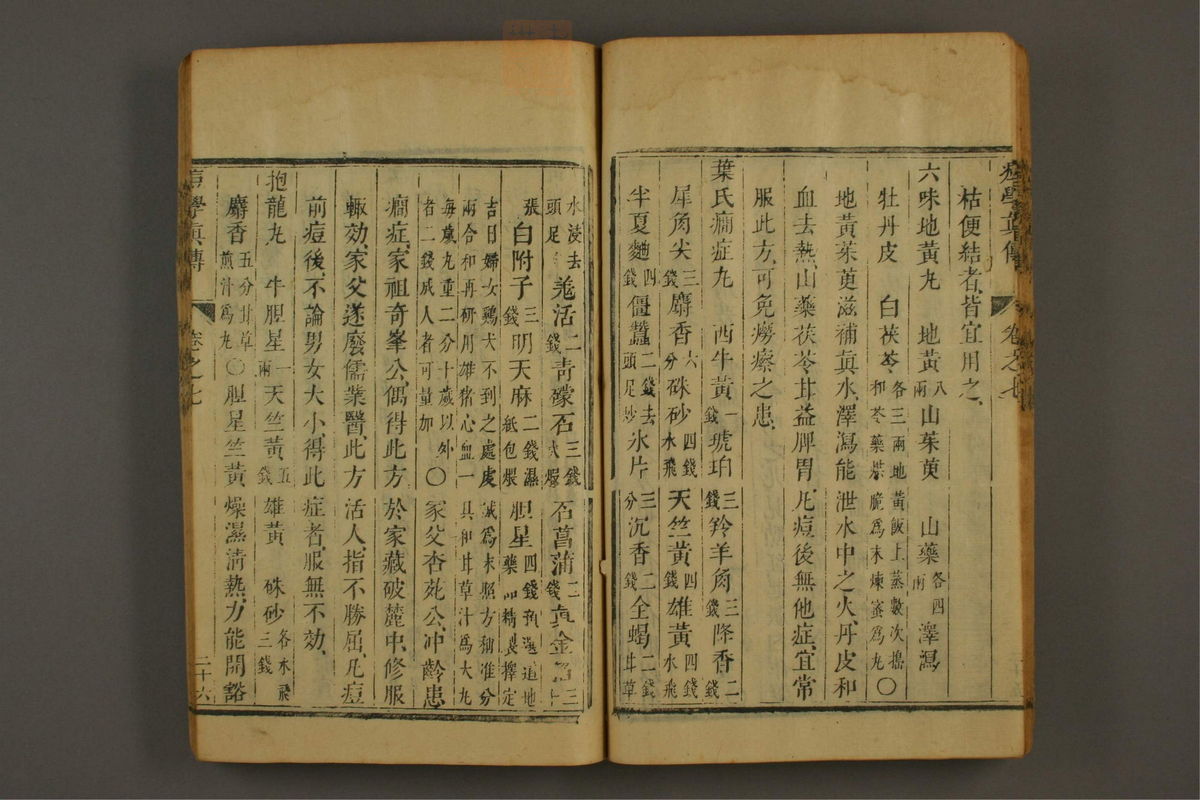 痘學真傳 卷之七
枯便結者、皆宜用之、
六味地黃丸 地黃八兩山茱萸 山藥各四兩澤瀉
牡丹皮 白茯苓各三兩地黃飯上蒸數次搗和苓藥烘脆為末煉蜜為丸〇
地黃茱萸滋補真水、澤瀉能泄水中之火、丹皮和
血去熱、山藥茯苓甘益脾胃 凡痘後無他症、宜常
服此方、可免癆瘵之患、
葉氏癇症丸 西牛黃一錢琥珀三錢羚羊角三錢降香二錢
犀角尖三錢麝香六分硃砂四錢水飛天竺黃四錢雄黃四錢水飛
半夏麯四錢僵蠶二錢去頭足炒氷片三分沉香二錢全蝎二錢甘草
水浸去頭足羌活二錢青礞石三錢火煆石菖蒲二錢真金箔三十
張白附子三錢明天麻二錢濕紙包煨胆星四錢預選道地藥品精良擇定
吉日婦女鷄犬不到之處虔誠為末照方稱准分
兩合和再研用雄猪心血一具和甘草汁為大丸
每歲丸重二分十歲以外者二錢成人者可量加〇家父杏苑公、冲齡患
癇症、家祖奇峯公、偶得此方於家藏破麓中、修服
輙効、家父遂廢儒業醫、此方活人、指不勝屈、凡痘
前痘後、不論男女大小、得此症者、服無不効、
抱龍丸 牛胆星一兩天竺黃五錢雄黃 硃砂各水飛三錢
麝香五分甘草煎汁為丸〇胆星竺黃燥濕清熱、力能開豁
痘學真傳 卷之七 二十六